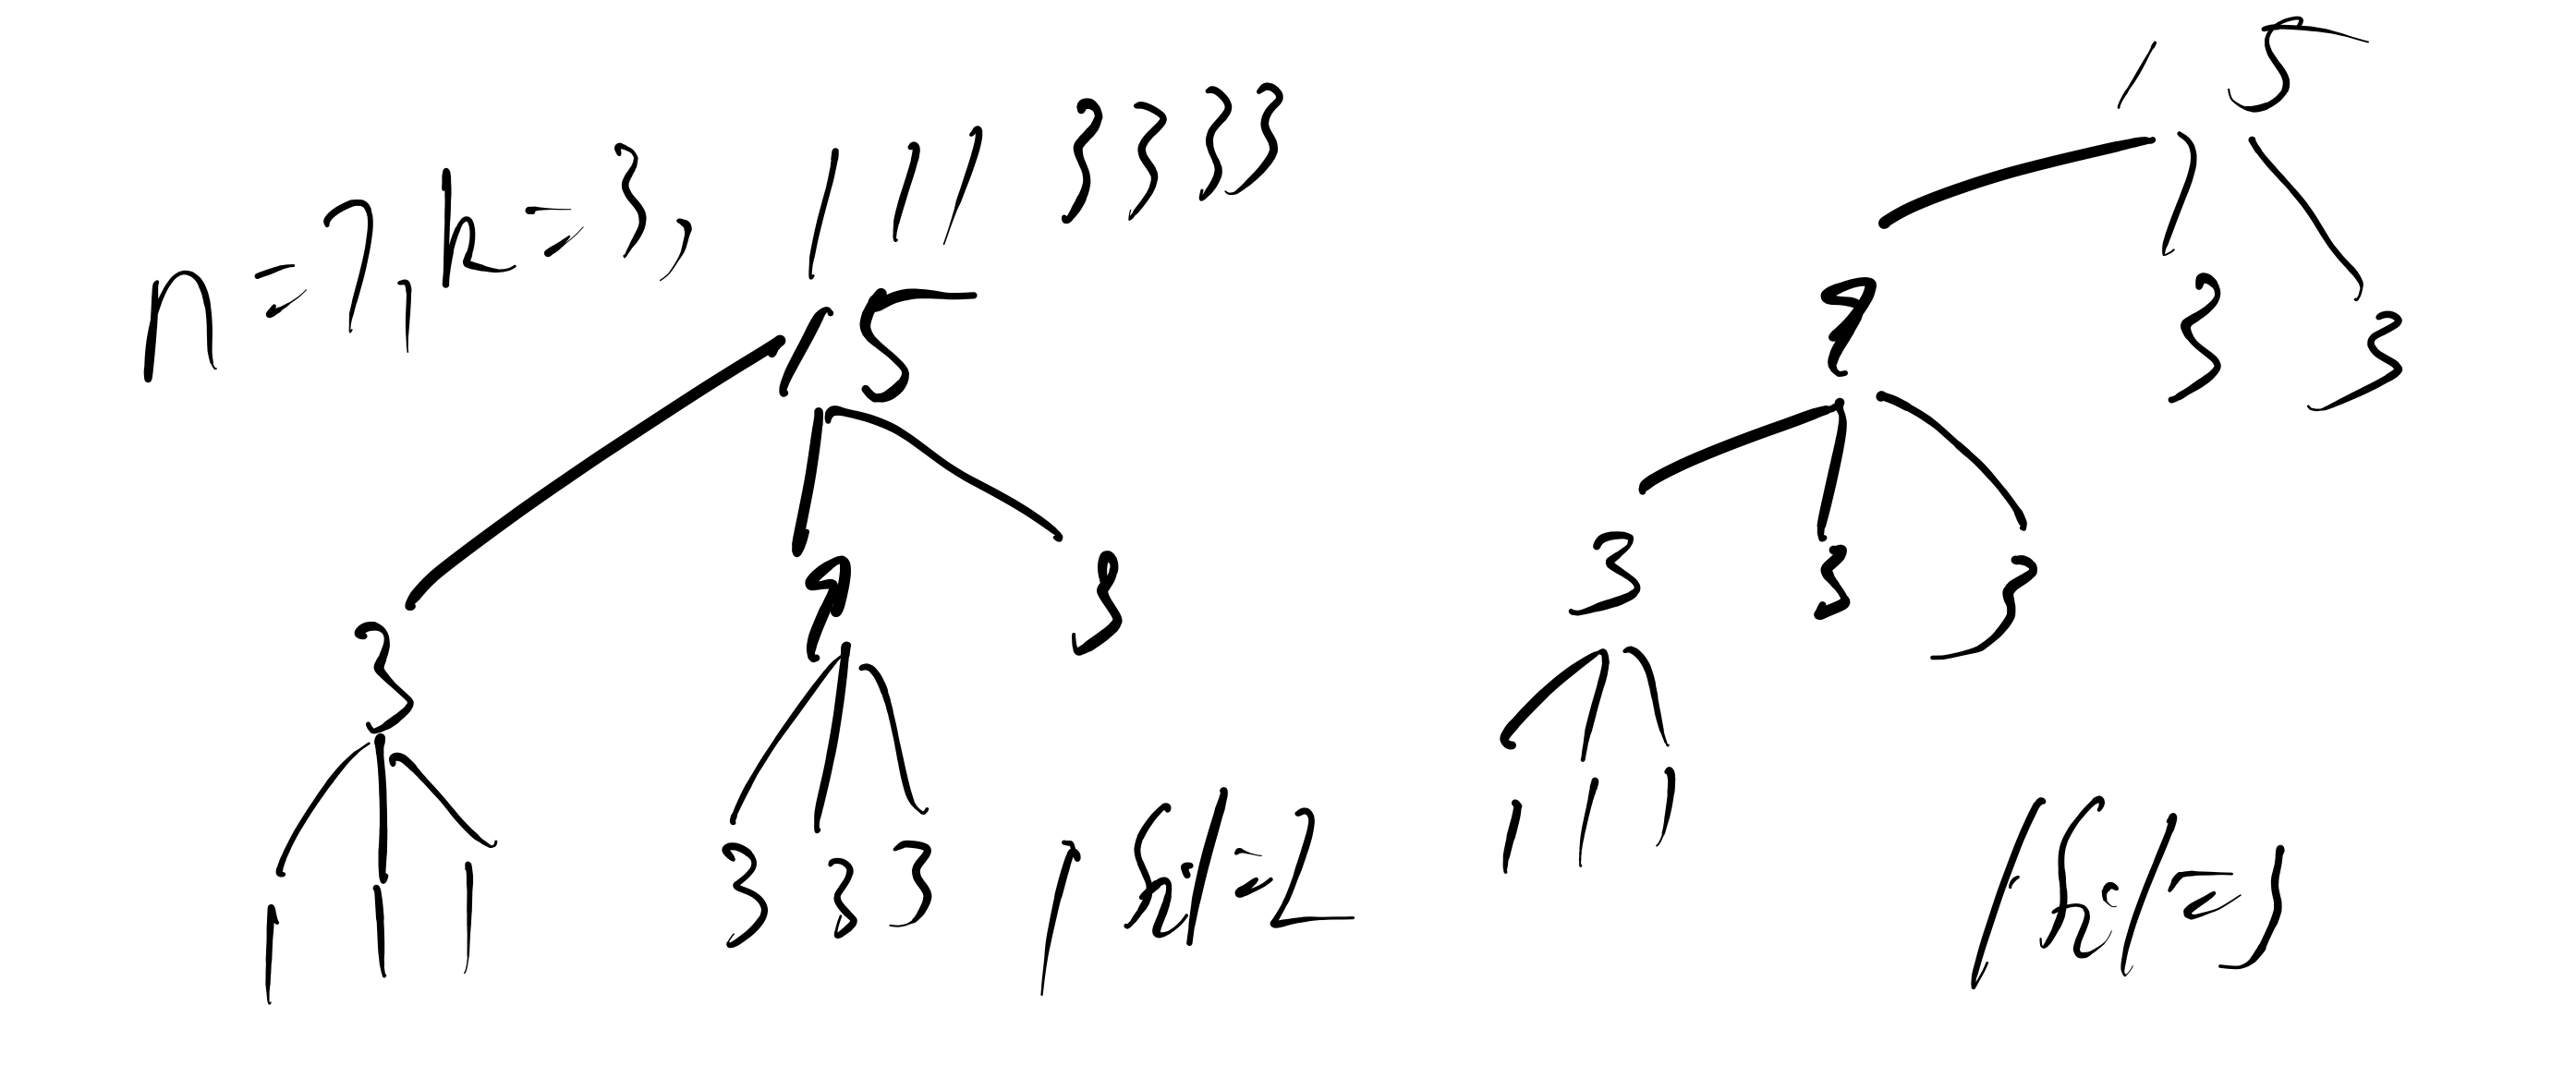 n=7,k=3, 1 1 1 3 3 3 3
15
3 9 3
1 1 1 3 3 3
|hi|=2
15
9 3 3
3 3 3
1 1 1
|hi|=3